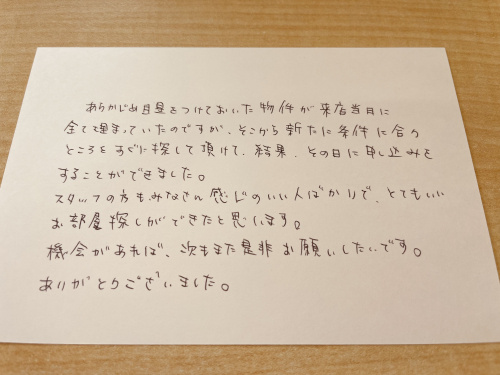 あらかじめ目星をつけておいた物件が来店当日に
全て埋まっていたのですが、そこから新たに条件に合う
ところをすぐに探して頂けて、結果、その日に申し込みを
することができました。
スタッフの方もみなさん感じのいい人ばかりで、とてもいい
お部屋探しができたと思います。
機会があれば、次もまた是非お願いしたいです。
ありがとうございました。